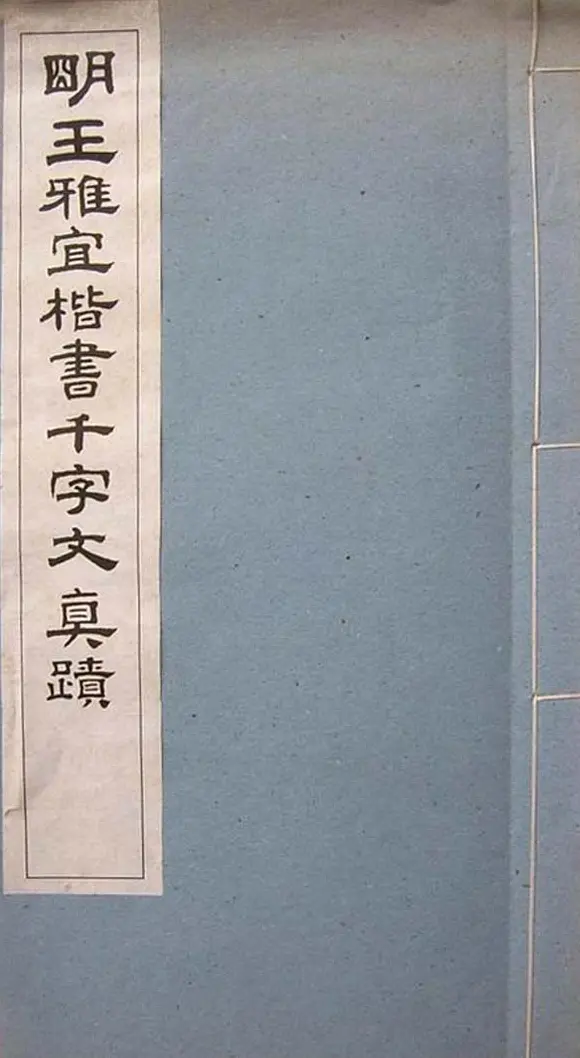 明王雅宜楷書千字文真蹟